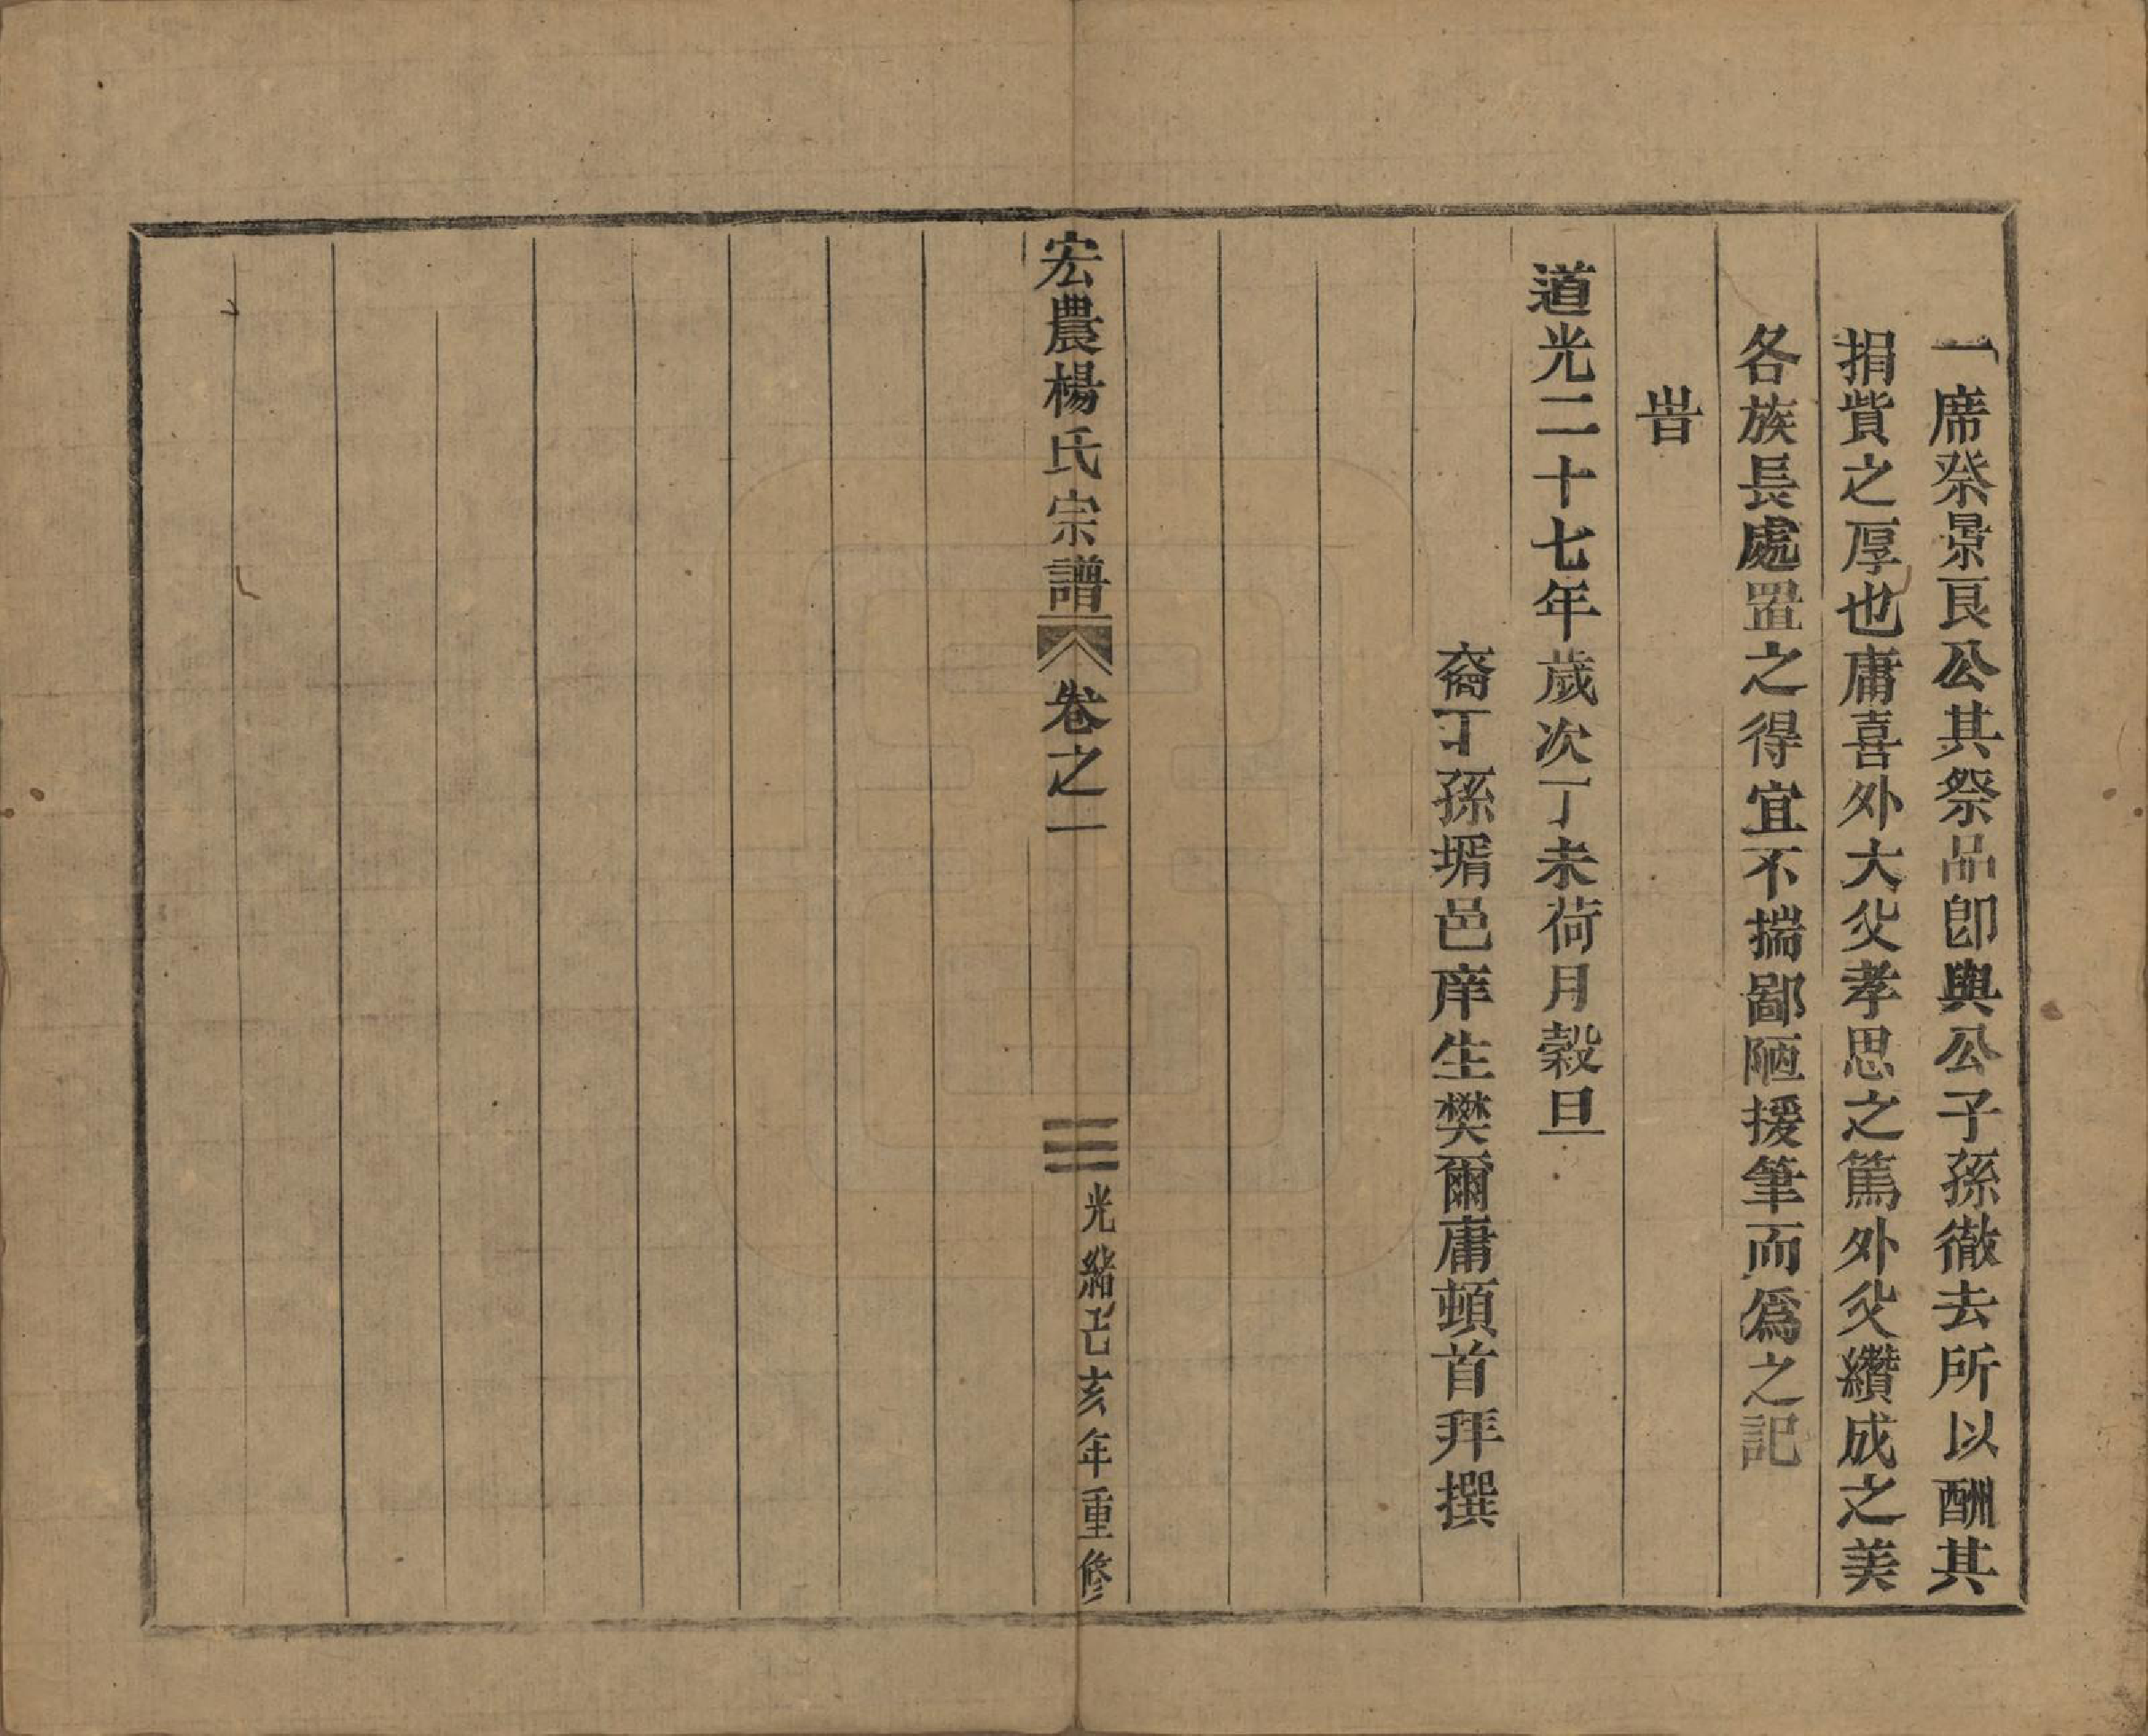 一席祭景良公其祭品卽與公子孫徹去所以酬其
捐貲之厚也庸喜外大父孝思之篤外父纘成之美
各族長處置之得宜不揣鄙陋援筆而爲之記
旹
道光二十七年歲次丁未荷月穀旦
裔丁孫壻邑庠生樊爾庸頓首拜撰
宏農楊氏宗譜 卷之一
光緒己亥年重修